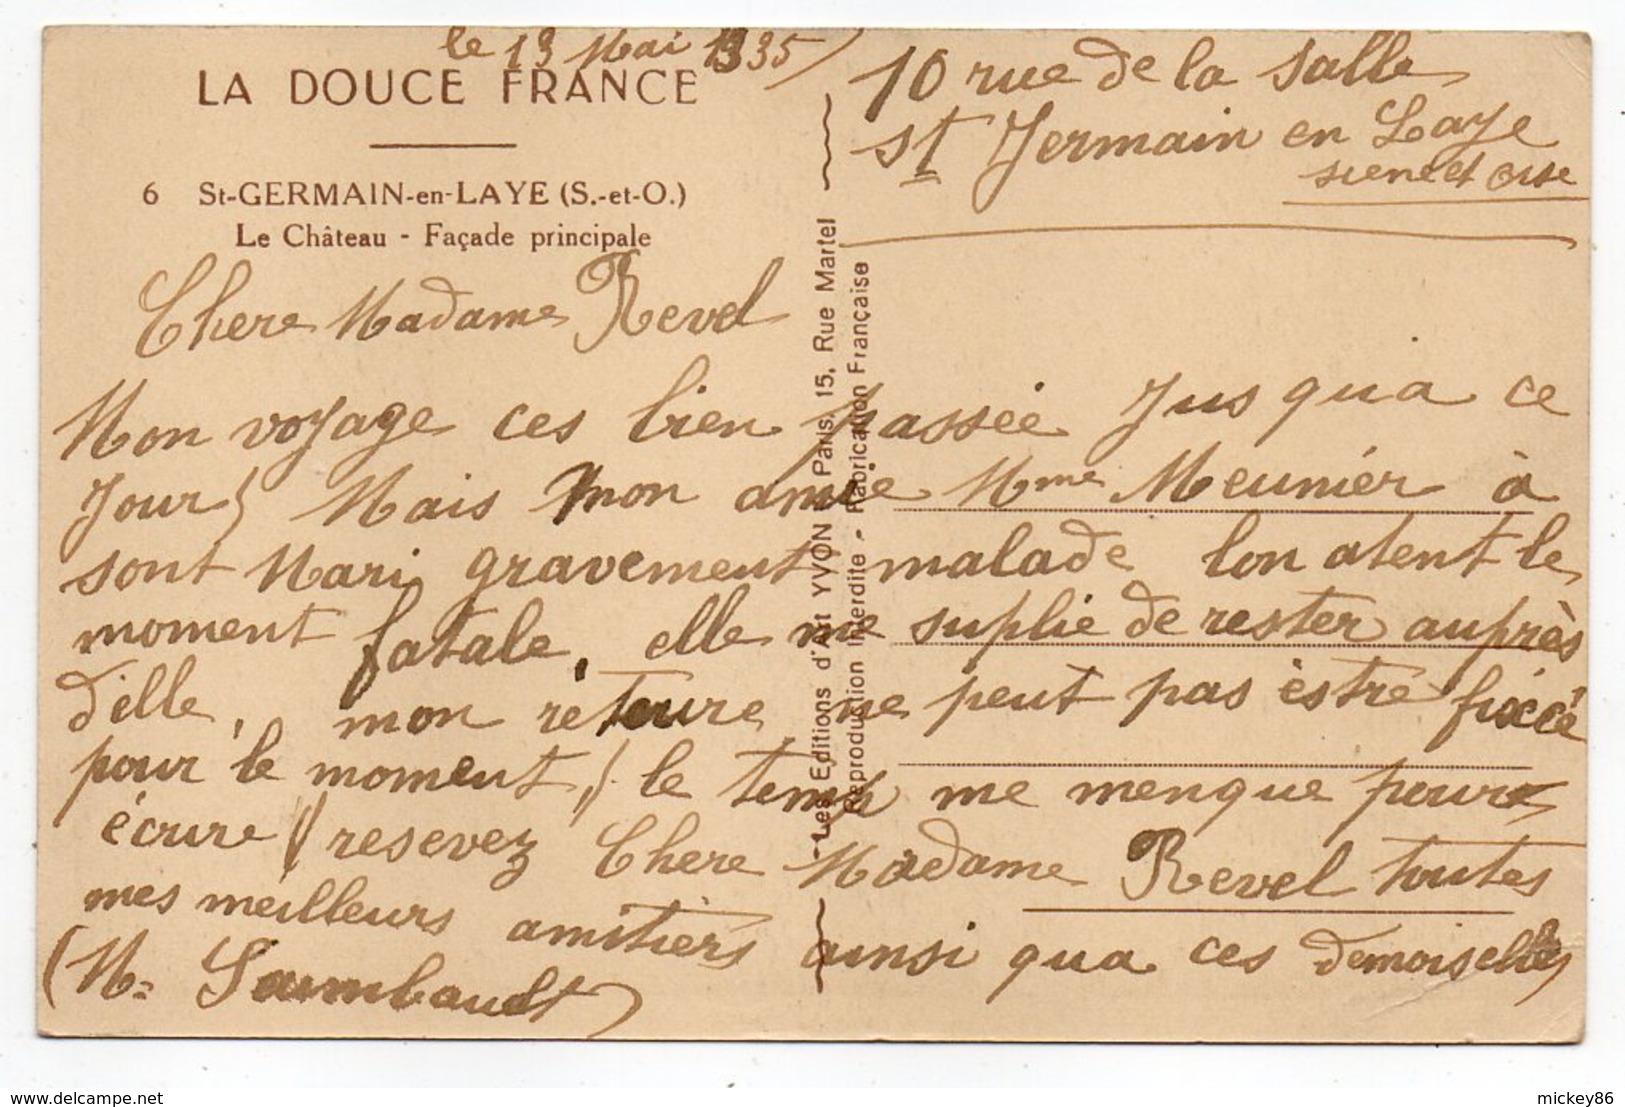 le 13 Mai 1935
LA DOUCE FRANCE
6 St-GERMAIN-en-LAYE (S.-et-O.)
Le Château - Façade principale
10 rue de la Salle
St Jermain en Laye
siene et oise
Les Editions d'Art YVON Paris, 15, Rue Martel
Reproduction Interdite - Fabrication Française
Chere Madame Revel
Mon voyage ces bien passée Jus qua ce
Jour) Mais mon amie Mme Meunier à
sont Mari gravement malade lon atent le
moment fatale. elle me suplie de rester auprès
d'elle, mon retoure ne peut pas èstre fixcé
pour le moment,) le temp me menque pour
écrire (( resevez Chere Madame Revel toutes
mes meilleurs amitiérs ainsi qua ces demoiselles
(M=
mickey86